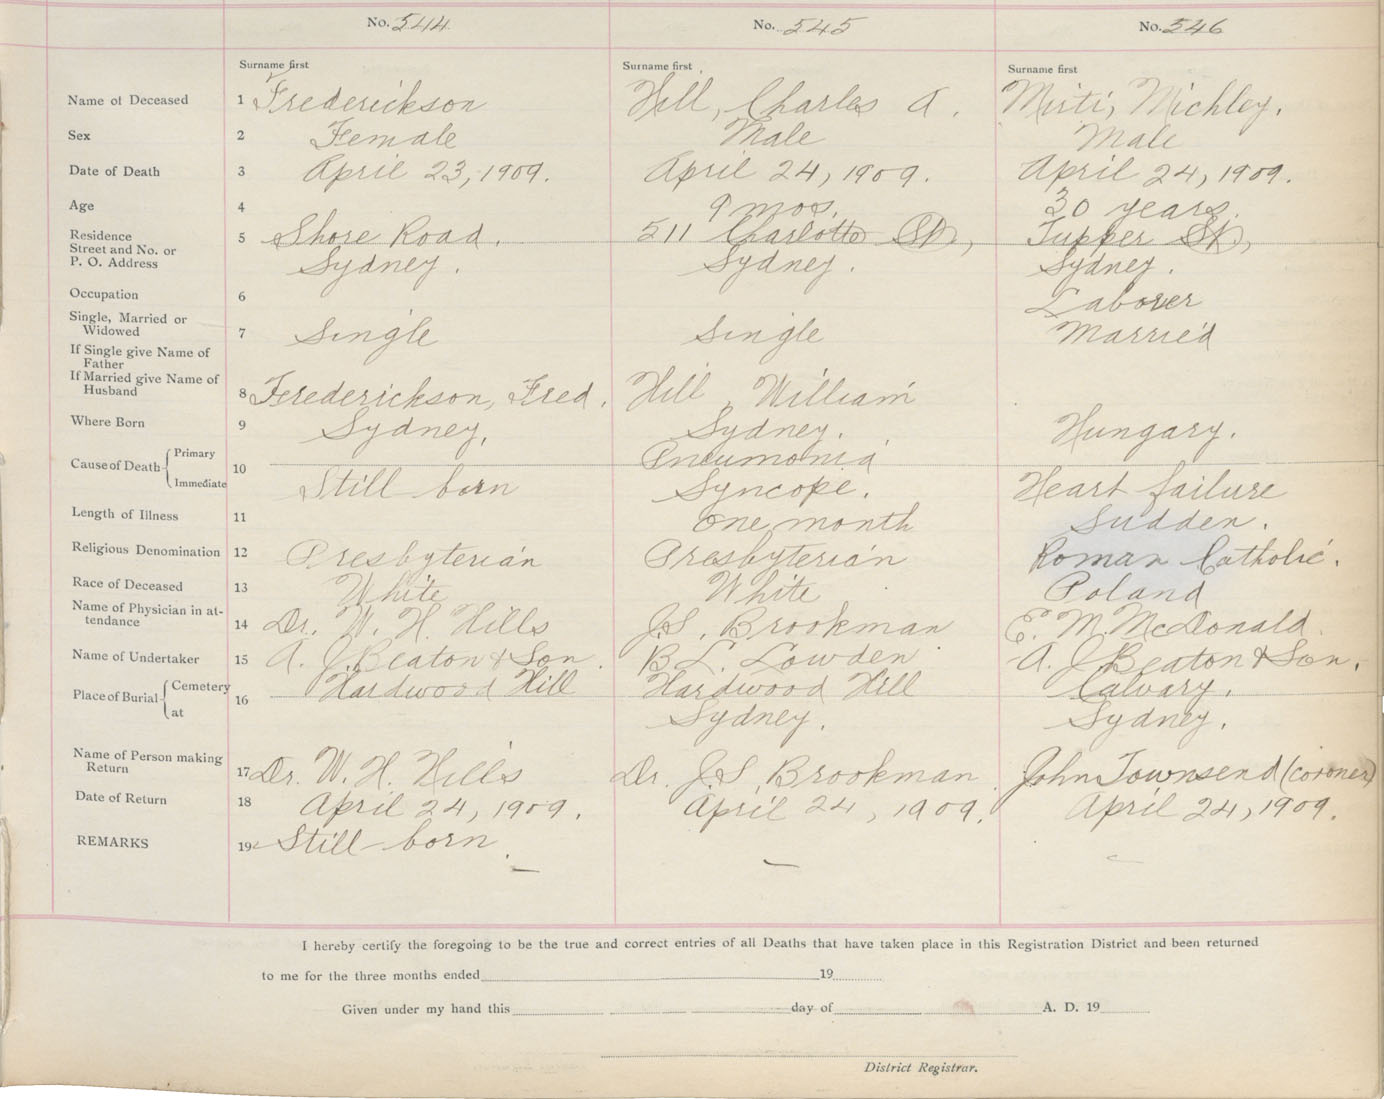 No. 544 No. 545 No. 546
Surname first Surname first Surname first
Name of Deceased 1 Frederickson Hill, Charles A. Misti, Michley.
Sex 2 Female Male Male
Date of Death 3 April 23, 1909. April 24, 1909. April 24, 1909.
Age 4 9 mos. 30 years.
Residence
Street and No. or 5 Shore Road. 511 Charlotte St, Tupper St,
P. O. Address Sydney. Sydney. Sydney.
Occupation 6 Laborer
Single, Married or
Widowed 7 Single Single Married
If Single give Name of
Father
If Married give Name of
Husband 8 Frederickson, Fred. Hill, William
Where Born 9 Sydney. Sydney. Hungary.
Cause of Death Primary 10 Pneumonia
Immediate Still born Syncope. Heart failure
Length of Illness 11 One month Sudden.
Religious Denomination 12 Presbyterian Presbyterian Roman Catholic.
Race of Deceased 13 White White Poland
Name of Physician in at-
tendance 14 Dr. W. H. Hills J.S. Brookman E. M. McDonald.
Name of Undertaker 15 A. J. Beaton & Son. B L. Lowden. A. J. Beaton & Son.
Place of Burial Cemetery 16 Hardwood Hill Hardwood Hill Calvary.
at Sydney. Sydney.
Name of Person making
Return 17 Dr. W. H. Hills Dr. J.S. Brookman. John Townsend (coroner)
Date of Return 18 April 24, 1909. April 24, 1909. April 24, 1909.
REMARKS 19 Still born.
I hereby certify the foregoing to be the true and correct entries of all Deaths that have taken place in this Registration District and been returned
to me for the three months ended 19
Given under my hand this day of A. D. 19
District Registrar.